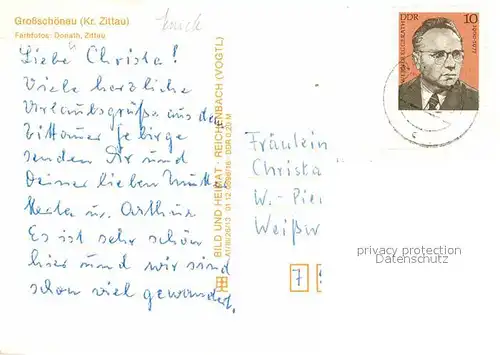 Großschönau (Kr. Zittau)
Farbfotos: Donath, Zittau
Liebe Christa!
Viele herzliche
Urlaubsgrüße aus dem
Zittauer Gebirge
senden Dir und
Deiner lieben Mutter
Herta u. Arthur
Es ist sehr schön
hier und wir sind
schon viel gewandert.
BILD UND HEIMAT · REICHENBACH (VOGTL)
DDR
10
1900-1971
WERNER EGGERATH
Fräulein
Christa
W.-Pie
Weißw
7
privacy protection
Datenschutz